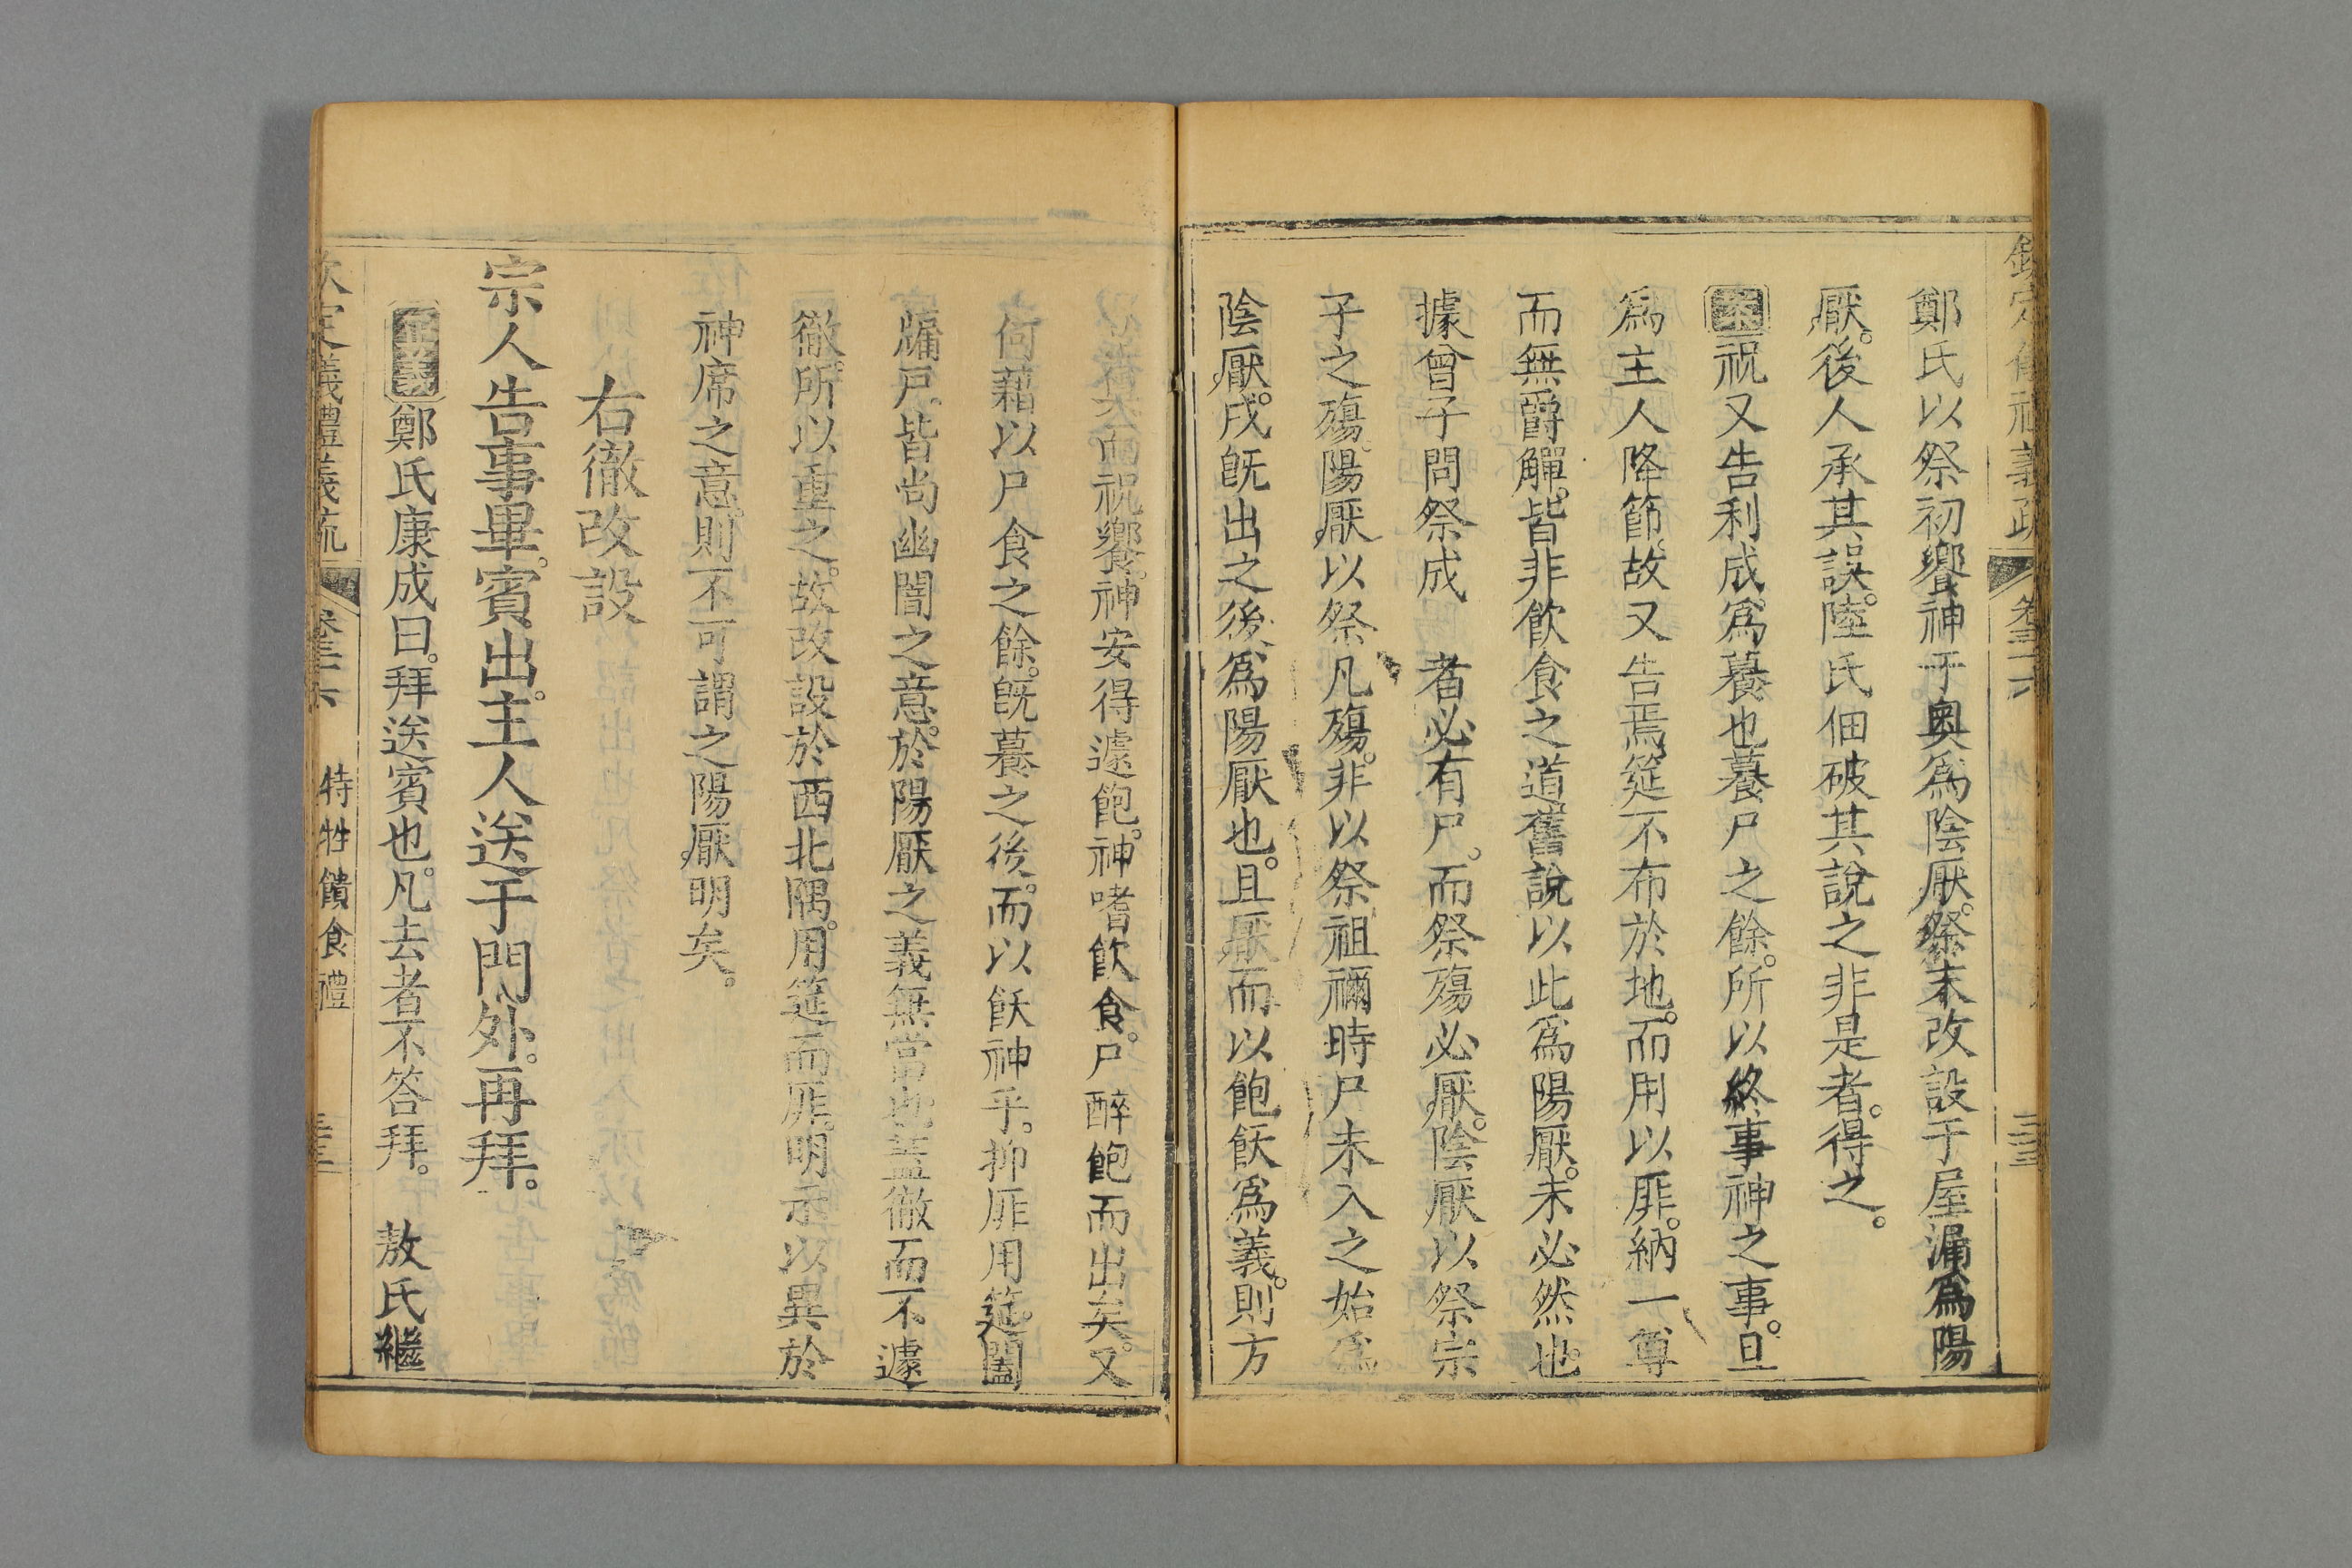 欽定儀禮義疏 卷三十六
鄭氏以祭初饗神于奥爲陰厭。祭末改設于屋漏爲陽
厭。後人承其誤。陸氏佃破其說之非是者。得之。
案祝又告利成。爲養也養尸之餘。所以終事神之事。且
爲主人降節。故又告焉筵不布於地。而用以厞。納一尊
而無爵觶。皆非飲食之道舊說以此爲陽厭。未必然也。
據曾子問祭成 者必有尸。而祭殤必厭。陰厭以祭宗
子之殤。陽厭以祭凡殤。非以祭祖禰時尸未入之始爲
陰厭。戌旣出之後爲陽厭也。且厭而以飽飫爲義。則方
而祝饗。神安得遽飽。神嗜飲食。尸醉飽而出矣。又
何藉以尸食之餘。旣養之後。而以飫神乎。抑厞用筵。闔
牖戸。皆尚幽闇之意。於陽厭之義無當也蓋徹而不遽
徹。所以重之。故改設於西北隅。用筵而厞。明示以異於
神席之意。則不可謂之陽厭明矣。
右徹改設
宗人告事畢。賓出。主人送于門外。再拜。
正義鄭氏康成曰。拜送賓也。凡去者不答拜。 敖氏繼
欽定儀禮義疏 卷三十六 特牲饋食禮